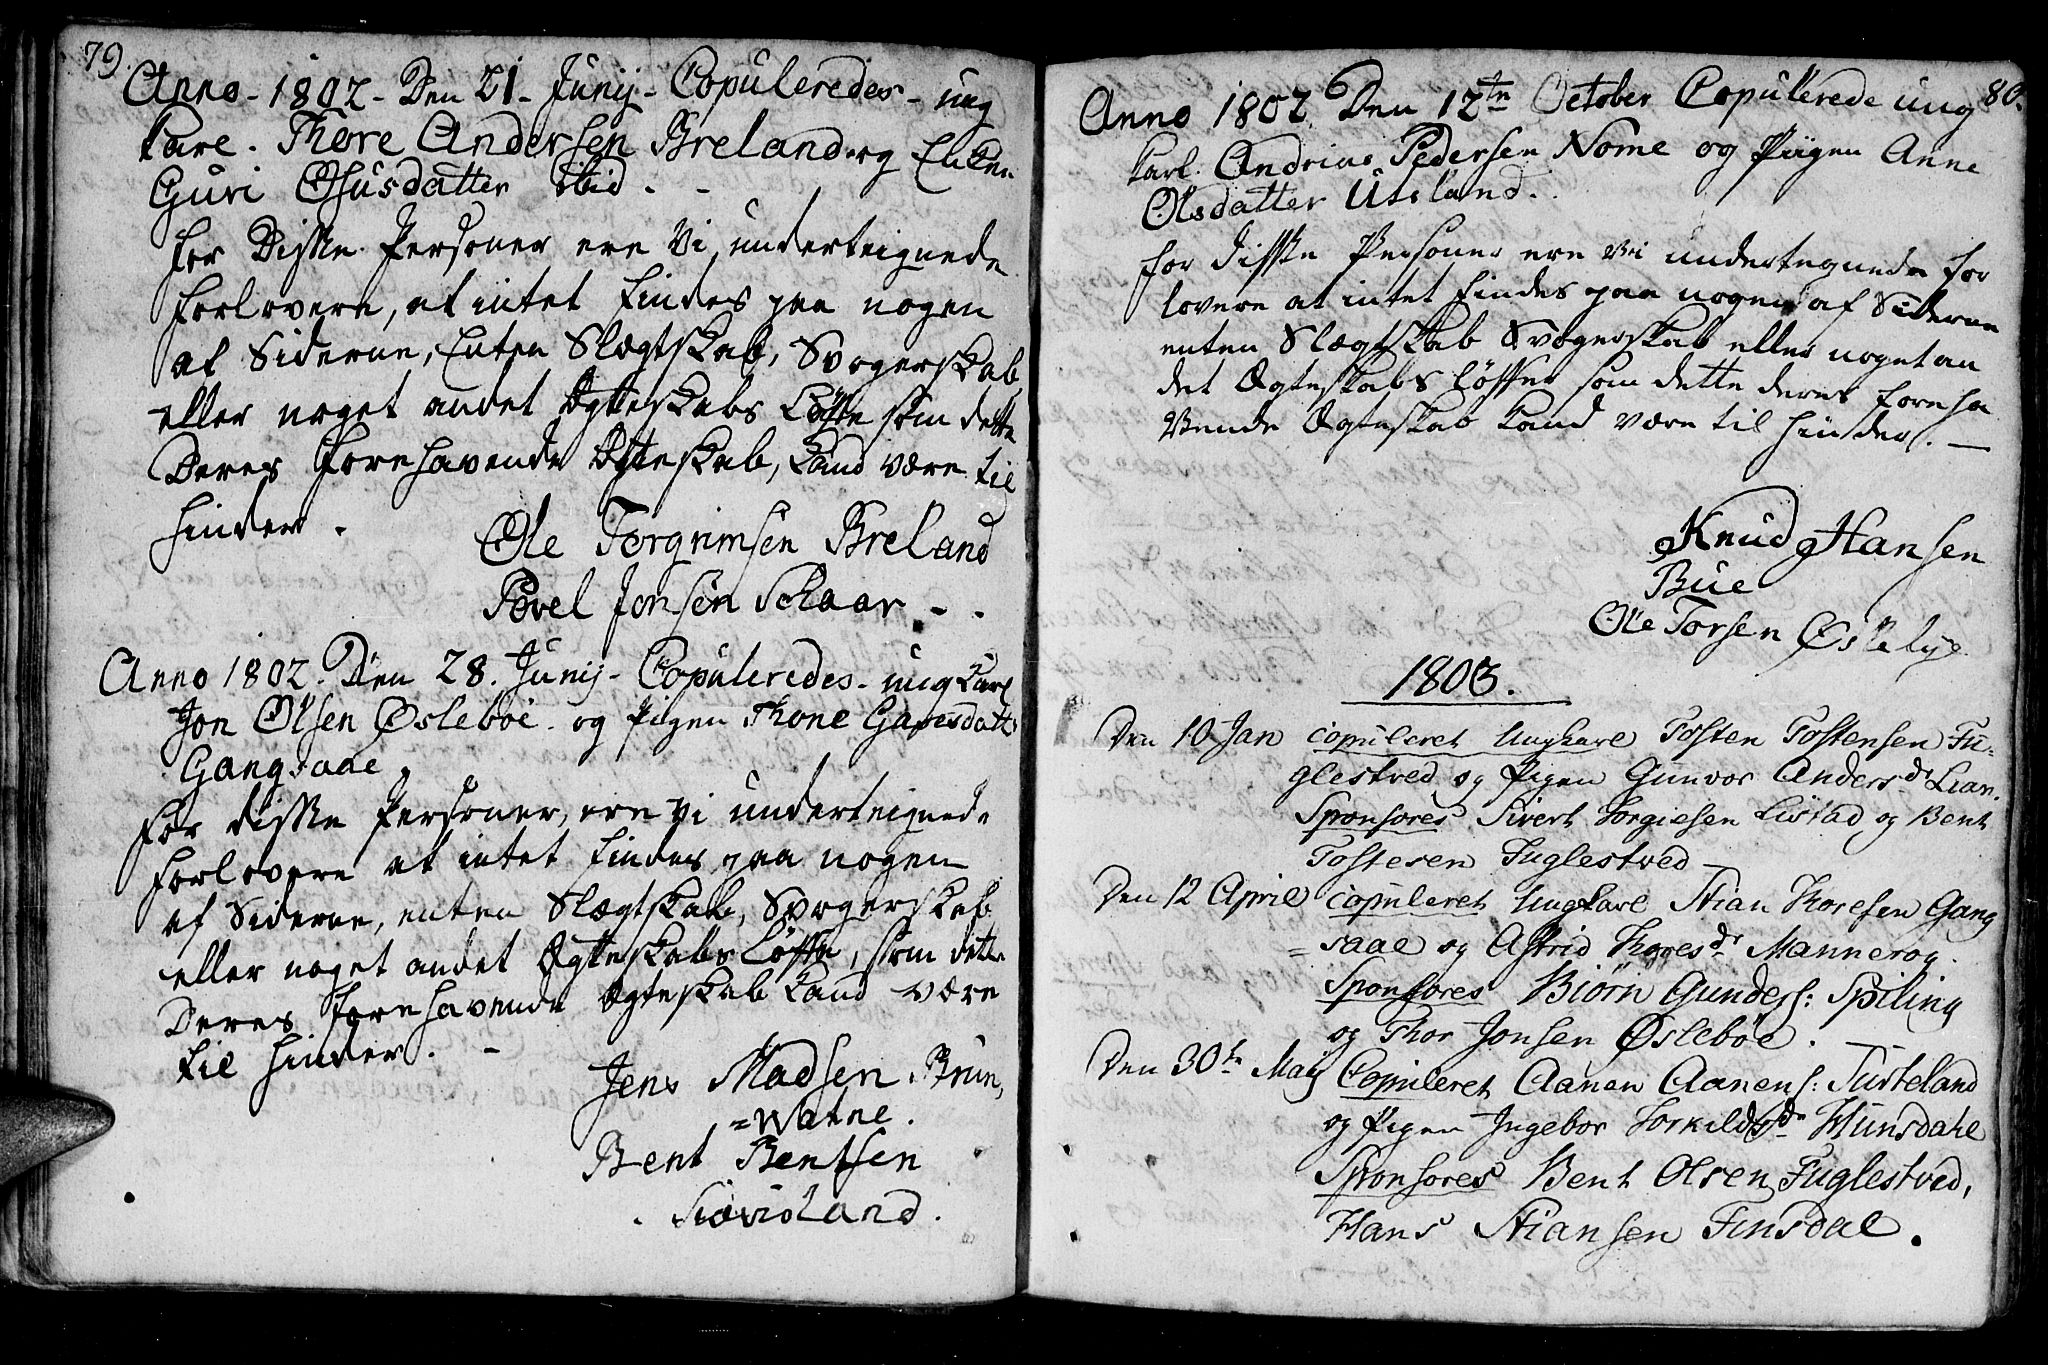 79.
Anno - 1802 - Den 21 - Junij - Copuleredes - ung
karl. Thore Andersen Breland og Enken
Guri Osusdatter ibid. -
for Disse Personer ere Vi underteignede
forlovere, at intet findes paa nogen
af Siderne, Enten Slægtskab, Svogerskab
eller noget andet Ægteskabs Løfte som dette
Deres forehavende Ægteskab, kand være til
hinder.
Ole Torgrimsen Breland
Povel Jonsen Schaar - -
Anno 1802. Den 28. Junij - Copuleredes - ung karl
Jon Olsen Øsleböe og Pigen Thone Garesdatt
Gangsaae.
for disse Personer, ere Vi underteignede
forlovere at intet findes paa nogen
af Siderne, enten Slægtskab, Svogerskab
eller noget andet Ægteskabs Løfte, som dette
Deres forehavende Ægteskab kand være
til hinder. -
Jens Madsen Brun,
= Watne.
Bent Bentsen
Sioviland.
80.
Anno 1802. Den 12tn October Copulerede ung
karl. Andrias Pedersen Nome og Piigen Anne
Olsdatter Utsland.
for disse Personer ere Vi undertegnede for
lovere at intet findes paa nogen af Siderne
enten Slægtskab Svogerskab eller noget an
det Ægteskabs Løfter som dette deres foreha
Vende Ægteskab kand være til hinder. —
Knud Hansen
Bue
Ole Torsen
1803.
Den 10 Jan copuleret Ungkarl Tosten Tostensen Fu-
glestved og Pigen Gunvor Andersdr Lian.
Sponsores Sivert Torgiesen Listad og Bent
Tostesen Fuglestved
Den 12 April copuleret Ungkarl Stian Thoresen Gang
= saae og Astrid Thoresdr Mannerog.
Sponsores Biörn Gunders: Spiling
og Thor Jonsen Øsleböe.
Den 30te Maij Copuleret Aanen Aanens: Tusteland
og Pigen Ingebor Torkildsdr Hunsdahl
Sponsores Bent Olsen Fuglestved,
Hans Stiansen Finsdal.